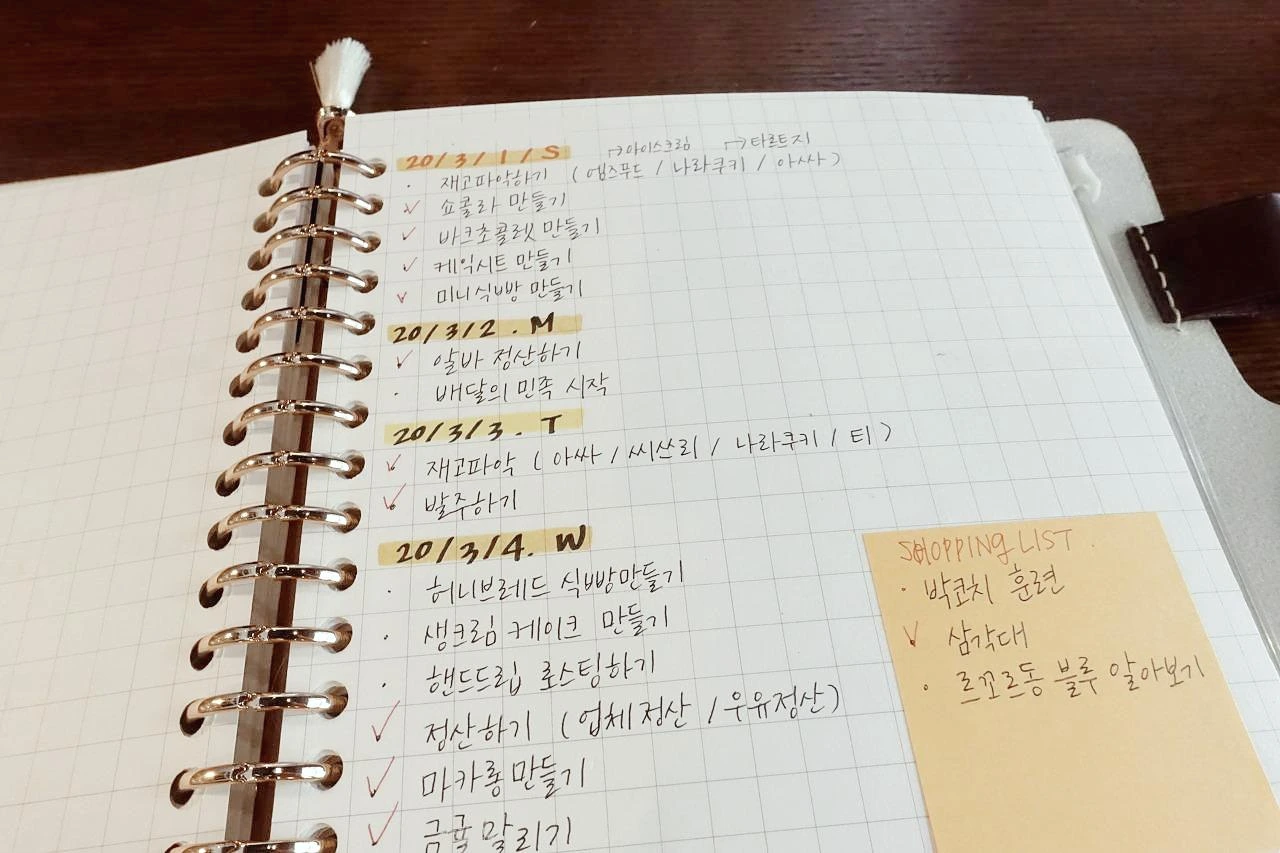 20/3/1/S →아이스크림 →타르트지
· 재고파악하기 ( 엡스푸드 / 나라쿠키 / 아싸 )
✓ 쇼콜라 만들기
✓ 바크초콜렛 만들기
✓ 케익시트 만들기
✓ 미니식빵 만들기
20/3/2. M
✓ 알바 정산하기
· 배달의 민족 시작
20/3/3. T
✓ 재고파악 ( 아싸 / 씨쓰리 / 나라쿠키 / 티 )
✓ 발주하기
20/3/4. W
· 허니브레드 식빵만들기
· 생크림 케이크 만들기
· 핸드드립 로스팅하기
✓ 정산하기 ( 업체정산 / 우유정산 )
✓ 마카롱 만들기
✓ 금귤 말리기
SHOPPING LIST.
· 박코치 훈련
✓ 삼각대
· 르꼬르동 블루 알아보기